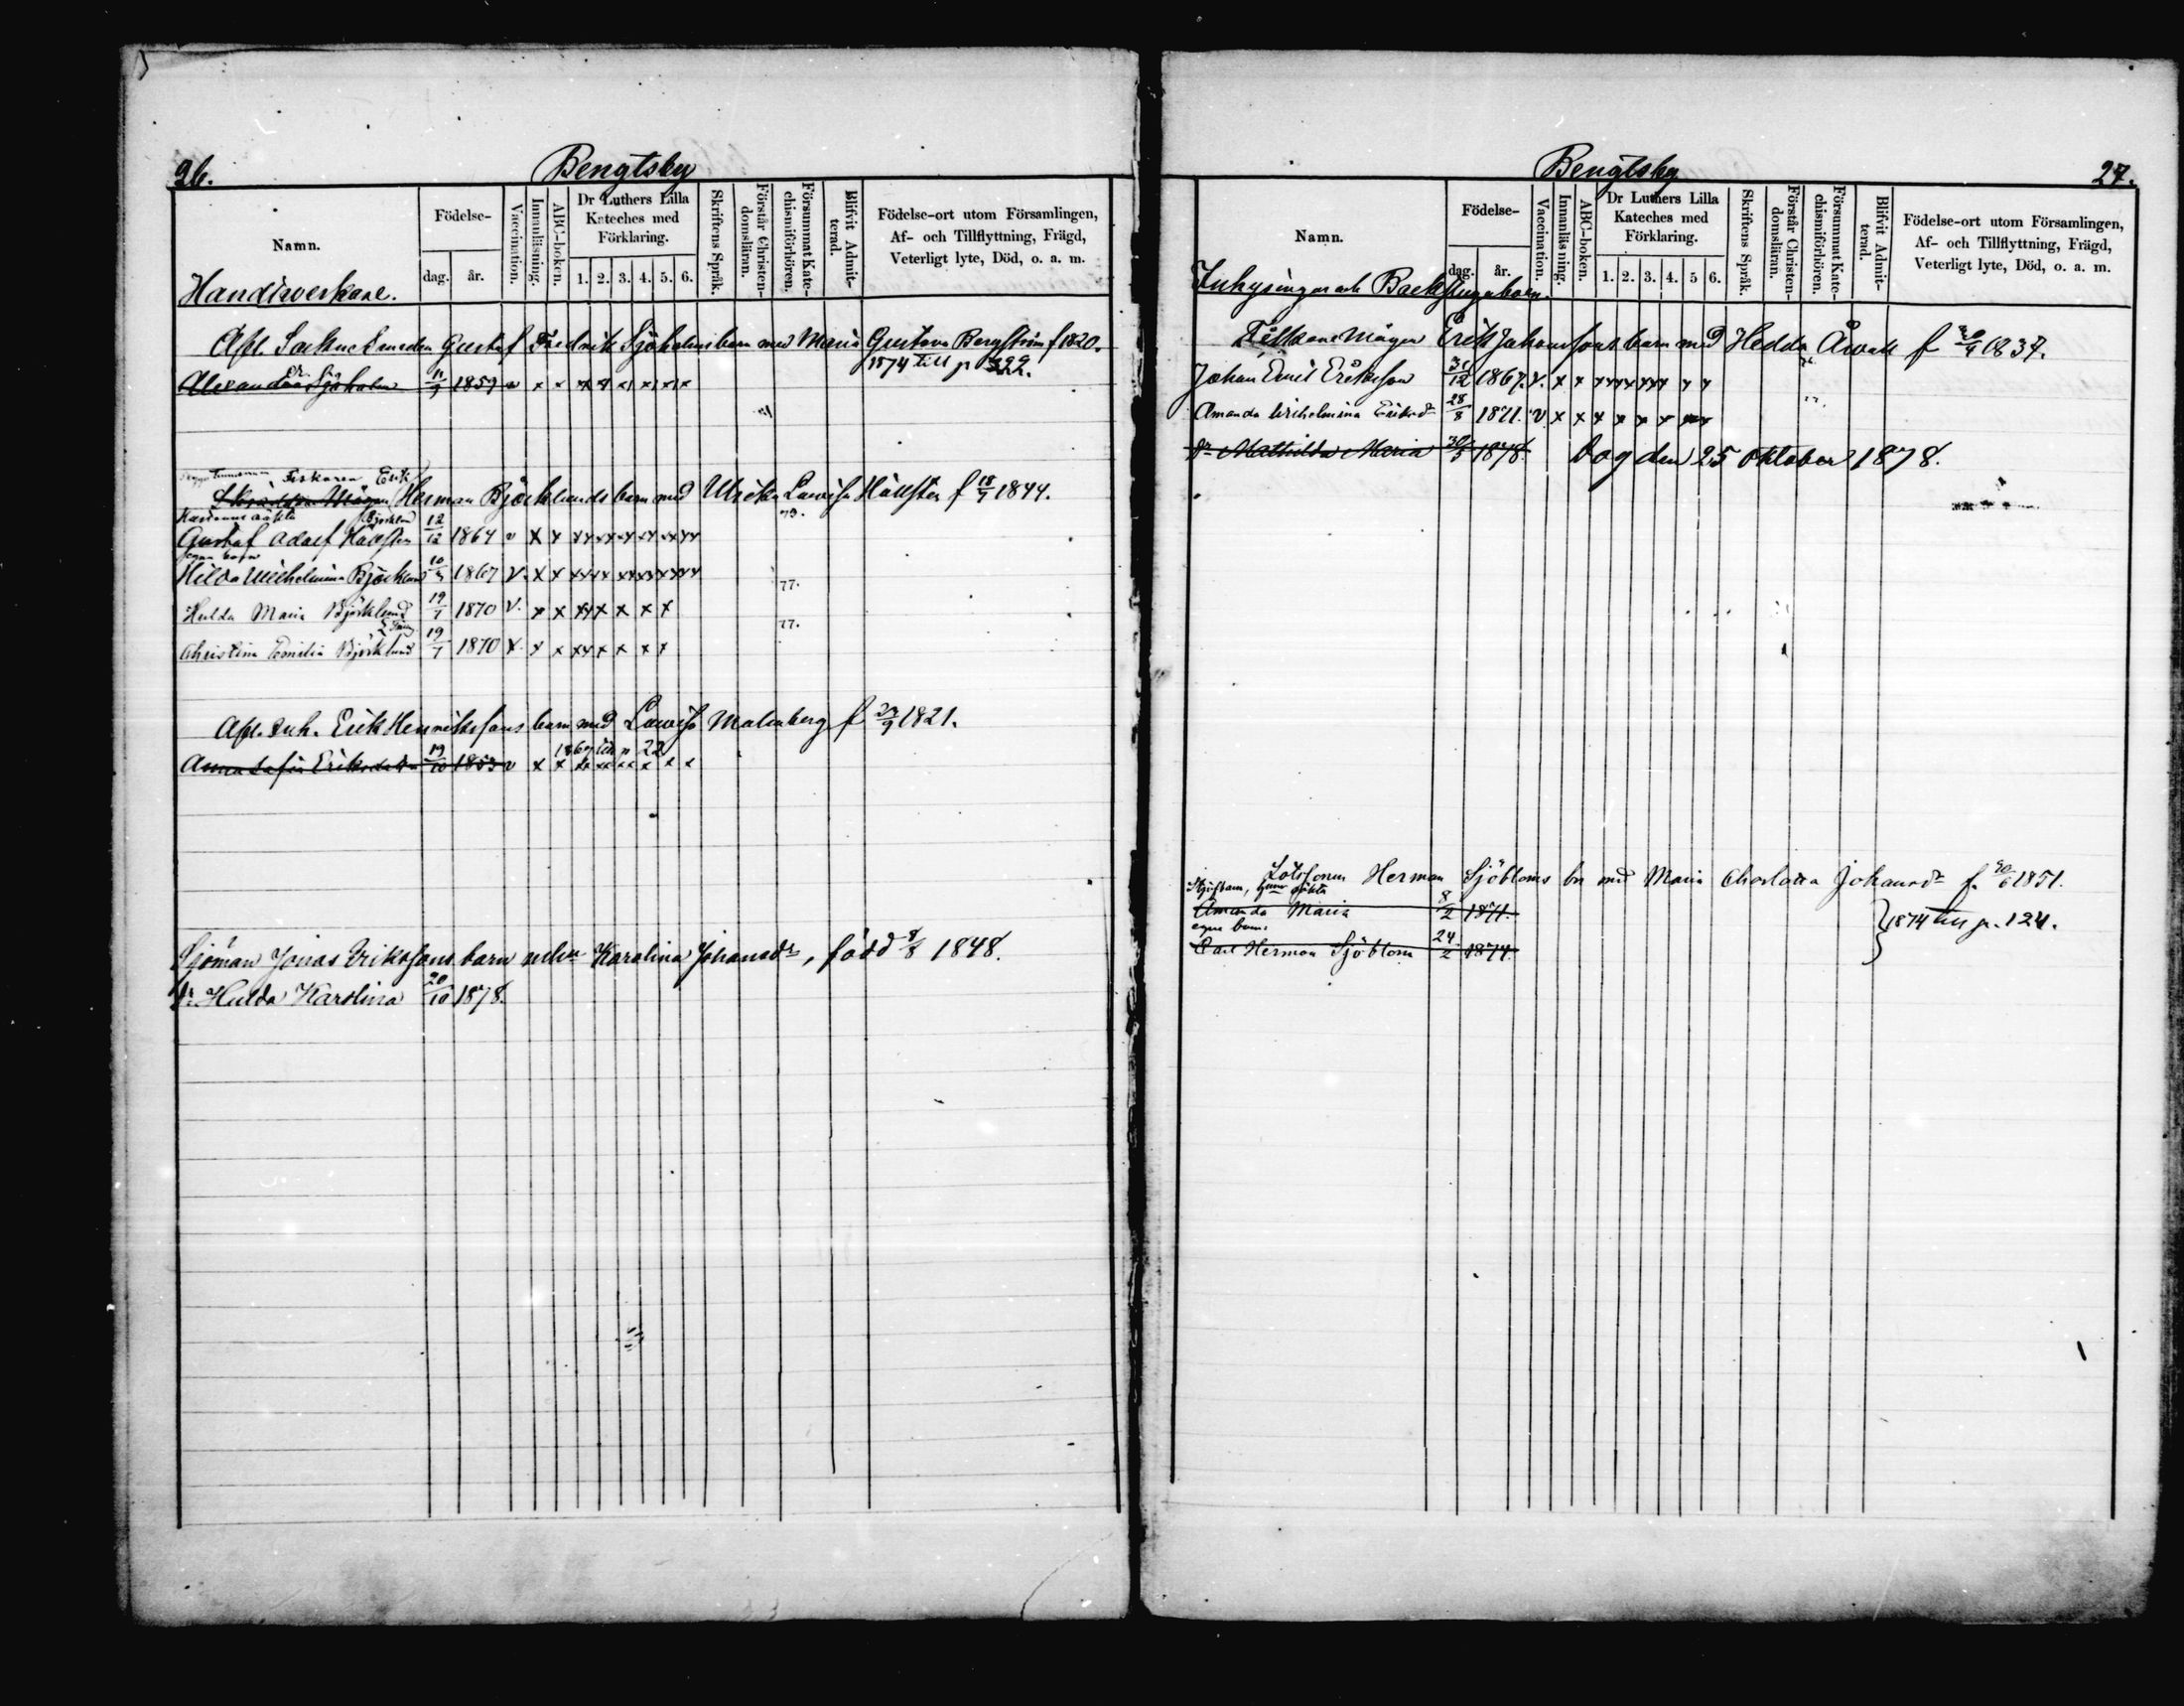 26.
Bengtsby
Namn.
Födelse-
dag.
år.
Vaccination.
Innanläsning.
ABC-boken.
Dr Luthers Lilla
Kateches med
Förklaring.
1. 2. 3. 4. 5. 6.
Skriftens Språk.
Förstår Christen-
domsläran.
Försummat Kate-
chismiförhören.
Blifvit Admit-
terad.
Födelse-ort utom Församlingen,
Af- och Tillflyttning, Frägd,
Veterligt lyte, Död, o. a. m.
Handtverkare.
Gustaf Fredrik Sjöholms barn med Maria Gustava Bergström f 1820.
1874 till p 322.
Sjöholm 11/9 1859 v x x x x x x x x
Fiskaren Erik
Herman Björklunds barn med Ulrika Lovisa Hällsten f 18/7 1844.
Björklund
79.
Gustaf Adolf Hällsten 12/12 1864 v x x xx xx xx xx xx xx
egna barn
Hilda Wilhelmina Björklund 10/3 1867 v. x x xx xx xx xx xx xx
77.
Hulda Maria Björklund 19/7 1870 v. x x xx x x x x
77.
Christina Emilia Björklund 19/7 1870 v. x x xx x x x x
Afl. Inh. Erik Henrikssons barn med Lovisa Malmberg f 23/9 1821.
1869 till p 22
Anna Sofia Eriksdotter 19/10 1853 v x x xx xx xx x x x
Sjöman Jonas Erikssons barn Karolina Johansdr, född 8/8 1848.
dr Hulda Karolina 20/10 1878.
Bengtsby
27.
Namn.
Födelse-
dag.
år.
Vaccination.
Innanläsning.
ABC-boken.
Dr Luthers Lilla
Kateches med
Förklaring.
1. 2. 3. 4. 5 6.
Skriftens Språk.
Förstår Christen-
domsläran.
Försummat Kate-
chismiförhören.
Blifvit Admit-
terad.
Födelse-ort utom Församlingen,
Af- och Tillflyttning, Frägd,
Veterligt lyte, Död, o. a. m.
Inhysingar och Backstuguboen.
Mågen Erik Johanssons barn med Hedda f 1837.
Johan Emil Eriksson 31/12 1867. v. x x xx xx xx x x
Amanda Wilhelmina Eriksdr 28/8 1871. v x x x x x x xx
dr Mathilda Maria 30/5 1878. Dog den 25 oktober 1878.
Lotssonen Herman Sjöbloms bn med Maria Charlotta Johansdr f. 1851.
Amanda Maria 8/2 1871.
1874 till p. 124.
egna barn:
Carl Herman Sjöblom 24/2 1874.